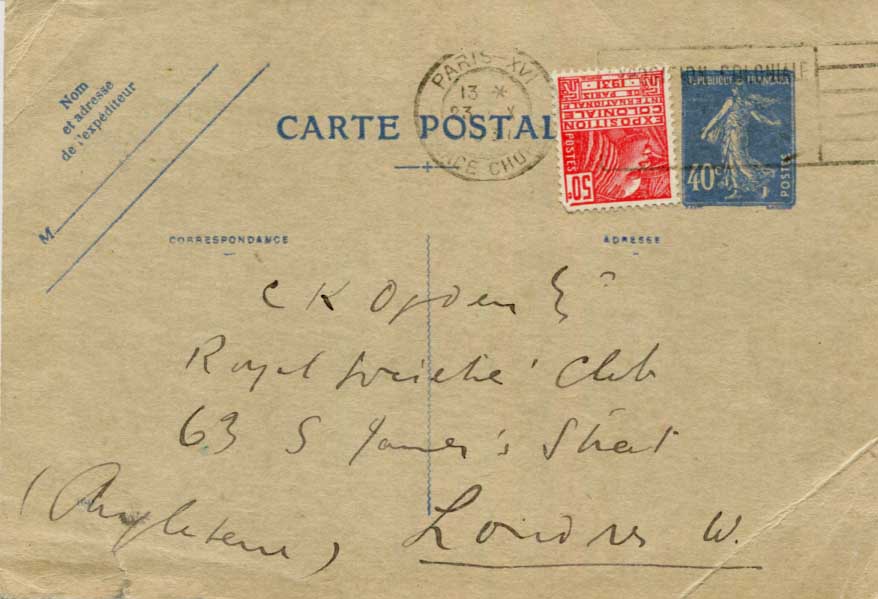 Nom
et adresse
de l'expéditeur
M
CARTE POSTAL
PARIS XVI
13 *
23 X
CE CHO
COLONIALE
EXPOSITION
COLONIALE
INTERNATIONALE
DE PARIS
1931
POSTES
50c
REPUBLIQUE FRANCAISE
40c
POSTES
CORRESPONDANCE
ADRESSE
C K Ogden Esq
Royal Societies' Club
63 S James's Street
(Angleterre)
Londres W.